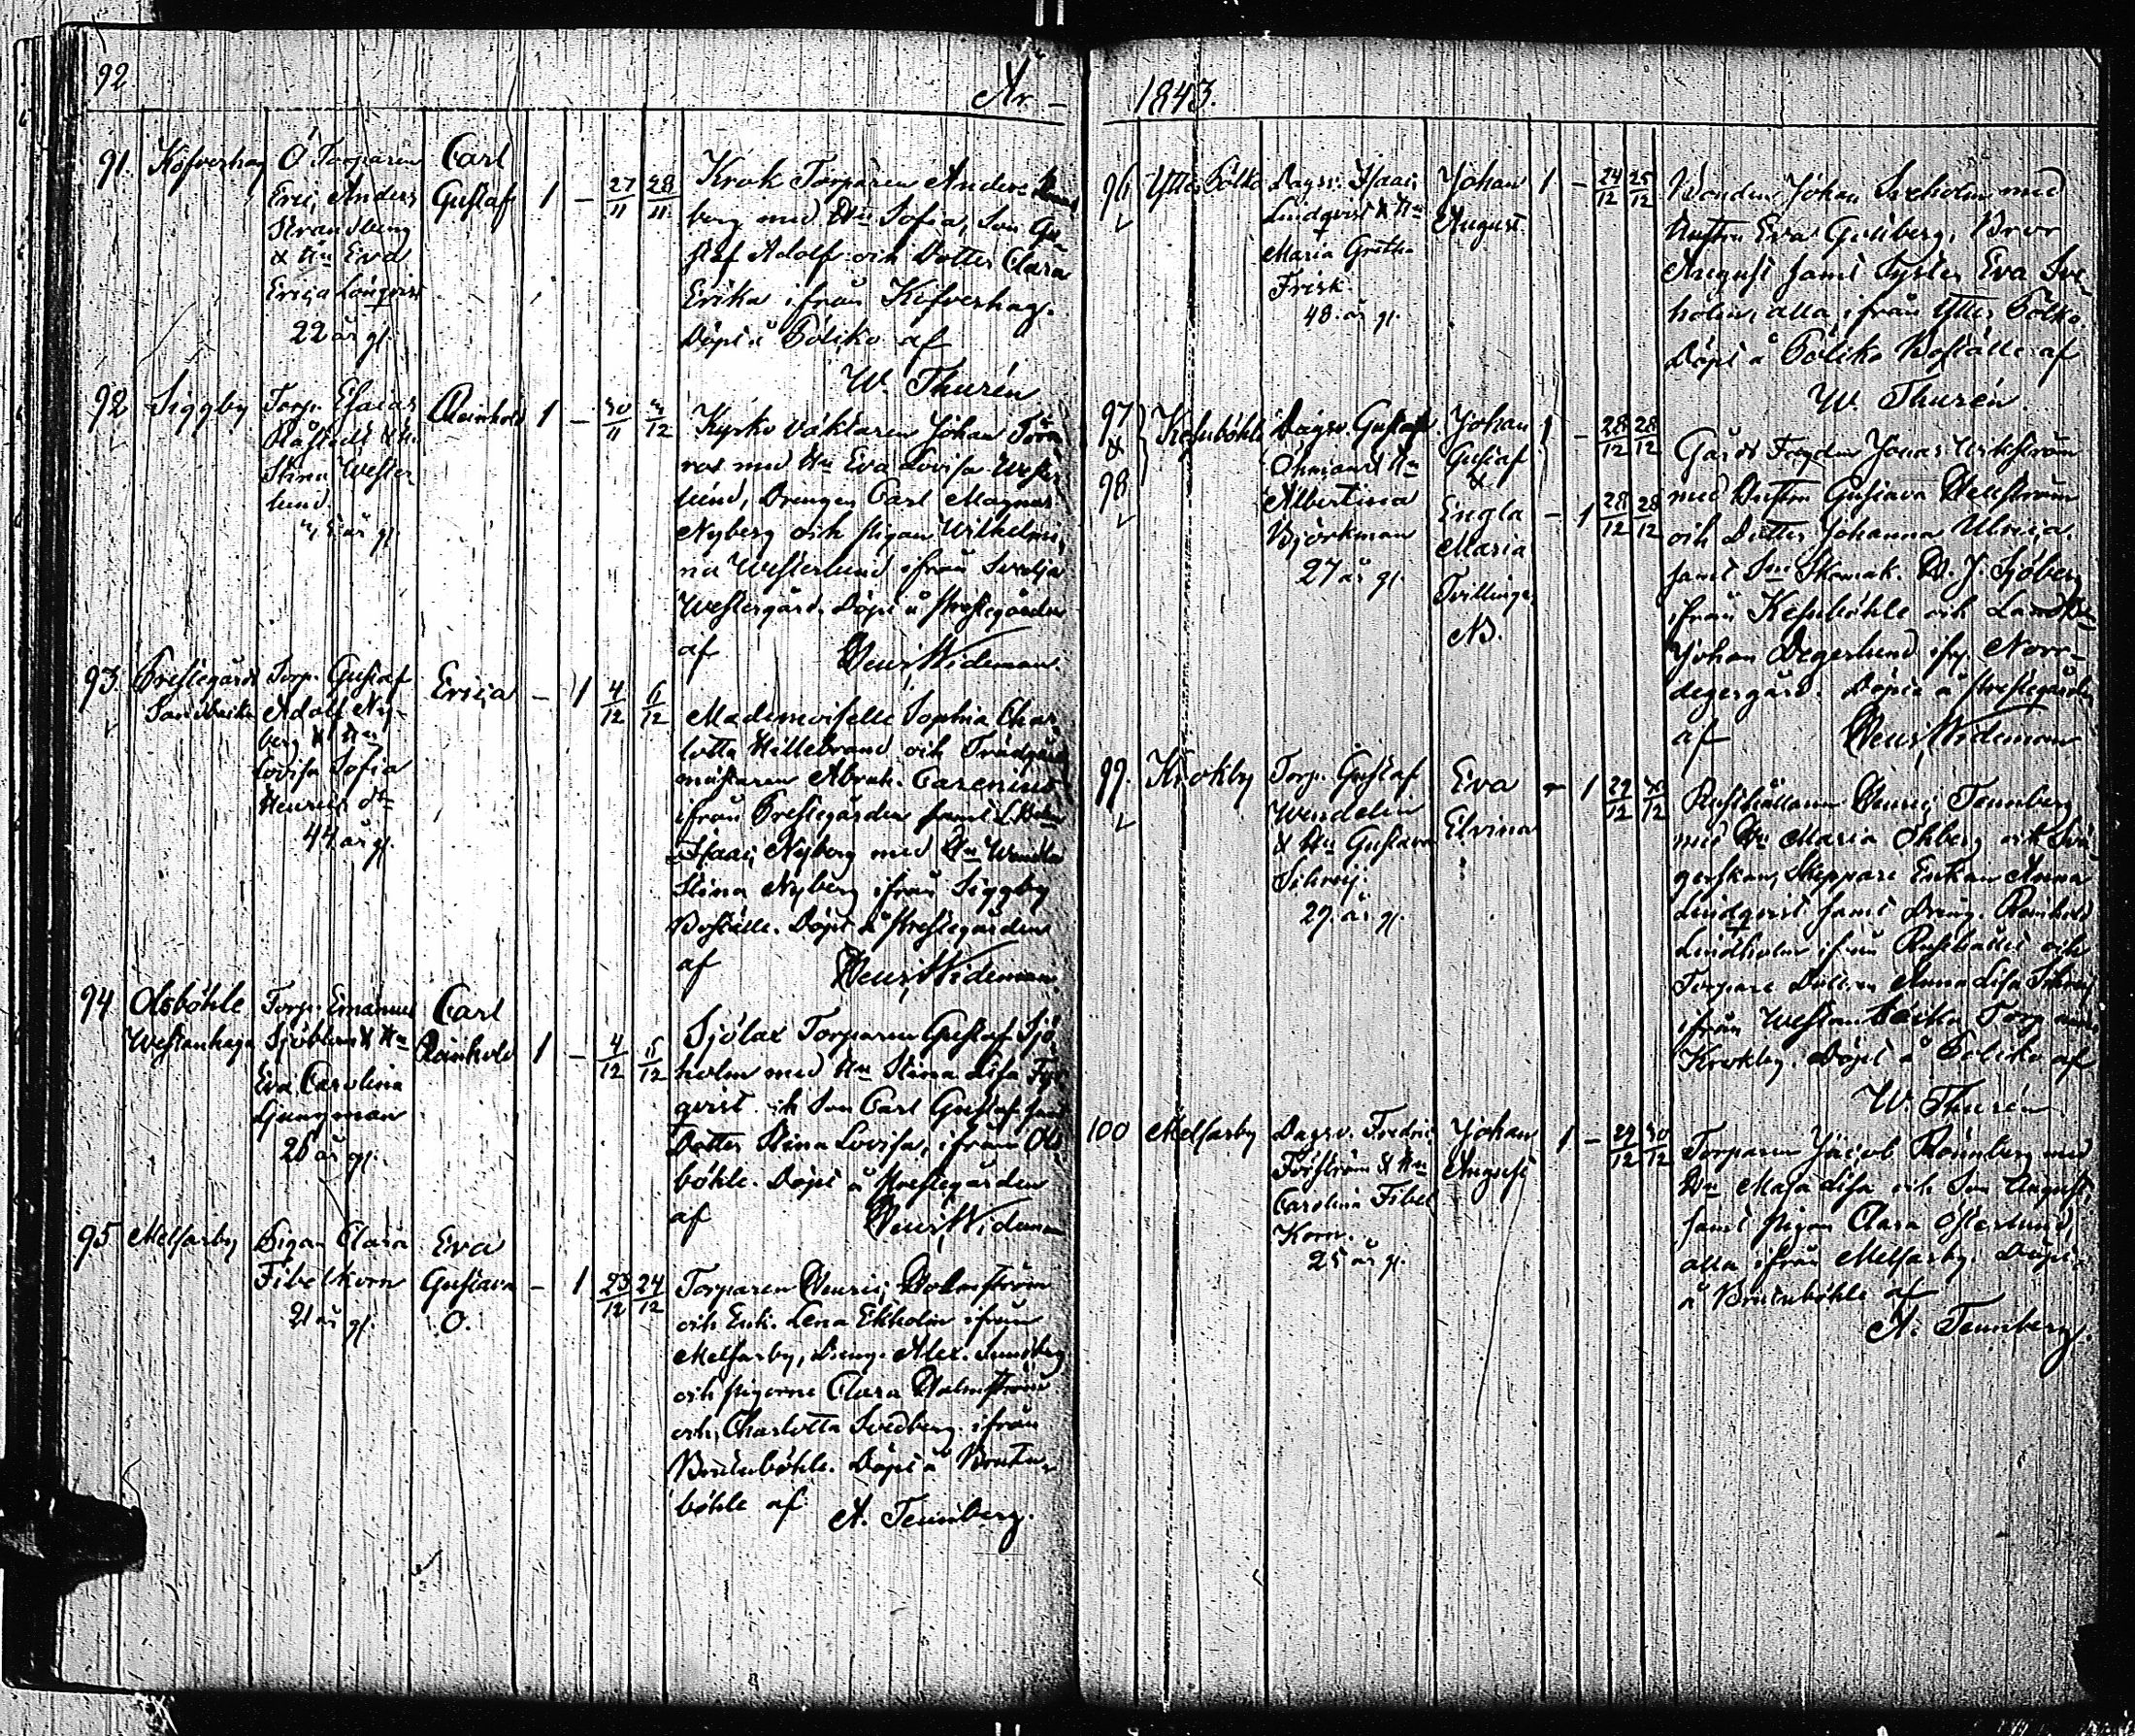 92
År
91. Köfverhag
Ö Torparen
Eric Anders
Strandberg
& Hu Eva
Erica Lönqvist
22 år gl.
Carl
Gustaf
1 — 27/11 28/11
Krok Torparen Anders
berg med Hu Sofia, Son Gu-
staf Adolf och Dotter Clara
Erika ifrån Köfverhag.
Döpt å Böliko af
W. Thurén
92 Siggby
Torp. Esaias
Stina Wester
lund
år gl.
Reinhold
1 — 30/11 /12
Kyrko väktaren Johan
med Hu Eva Lovisa Wester
lund, Drengen Carl Magnus
Nyberg och pigan Wilhelmi,
na Westerlund ifrån
Westergård. Döpt å prestegården
af Henric Wideman.
93. Prestegårds
Sandbacka
Torp. Gustaf
Adolf Ny-
berg & Hu
Lovisa Sofia
Henrics dtr
44 år gl.
Erica
— 1 4/12 6/12
Mademoiselle Sophia Char
lotta Hillebrand och Trädgårds
mästaren Abrah. Carenius
ifrån Prestegården samt
Isaac Nyberg med Hu
Stina Nyberg ifrån Siggby
Boställe. Döpt å prestegården
af Henric Wideman.
94 Olsböhle
Westanhaga
Torp. Emanuel
Sjöblom & Hu
Eva Carolina
Ljungman
26 år gl.
Carl
Reinhold
1 — 4/12 /12
Sjölax Torparen Gustaf Sjö
holm med Hu Stina Lisa
qvist och Son Carl Gustaf samt
Dotter Stina Lovisa, ifrån Ols
böhle. Döpt å prestegården
af Henric Wideman
95 Melsarby
Pigan Clara
Fibelkorn
21 år gl.
Eva
Gustava
O.
— 1 23/12 24/12
Torparen Henric Holmström
och Enk. Lena Ekholm ifrån
Melsarby, Dreng. Alex. Sundberg
och pigorne Clara Holmström
och Charlotta Svedberg ifrån
Brutuböhle. Döpt å Brutu-
böhle af A. Tennberg.
1843.
96 Ytter Bölko
Dagsv. Isaac
Lindqvist & Hu
Maria Gretha
Frisk.
48 år gl.
Johan
August
1 — 24/12 25/12
Bonden Johan Sveholm med
Hustru Eva Gustberg, Bror
August samt Syster Eva Sve-
holm, alla ifrån Ytter Bölko.
Döpt å Böliko Boställe af
W. Thurén.
97
&
98
Kesuböhle
Dagsv. Gustaf
Öhman & Hu
Albertina
Björkman
27 år gl.
Johan
Gustaf
&
Engla
Maria
Tvillingar
NB.
1 — 28/12 28/12
— 1 28/12 28/12
Gårds Fogden Jonas
med Hustru Gustava Hellström
och Dotter Johanna Ulrica.
samt Skomak. J. Sjöberg
ifrån Kesuböhle och
Johan Degerlund ifr. Norr-
degergård. Döpta å prestegården
af Henric Wideman
99. Krokby
Torp. Gustaf
Wendelin
& Hu Gustava
29. år gl.
Eva
Elvina
— 1 29/12 30/12
Rusthållaren Henric Tennberg
med Hu Maria Öhberg och Svä
gerskan, Skeppare Enkan Anna
Lindqvist samt Dreng. Reinhold
Lindholm ifrån Rusthållet och
Torpare Dottren Anna Lisa
ifrån Westan
Krokby. Döpt å Böliko af
W. Thurén
100 Melsarby
Dagsv. Fredric
Forsström & Hu
Carolina Fibel
Korn.
25 år gl.
Johan
August
1 — 29/12 30/12
Torparen Jacob Rönnberg med
Hu Maja Lisa och Son August,
samt pigan Clara Österlund,
alla ifrån Melsarby. Döpt
å Brutuböhle af
A. Tennberg.